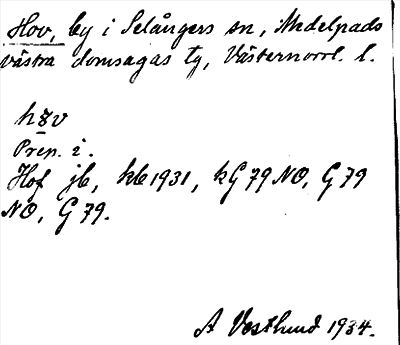 Hov, by i Selångers sn, Medelpads
västra domsagas tg, Västernorrl. l.
hɛv
Prep. i.
Hof jb, kb 1931, kG 79 NO, G 79
NO, G 79.
A Vestlund 1934.